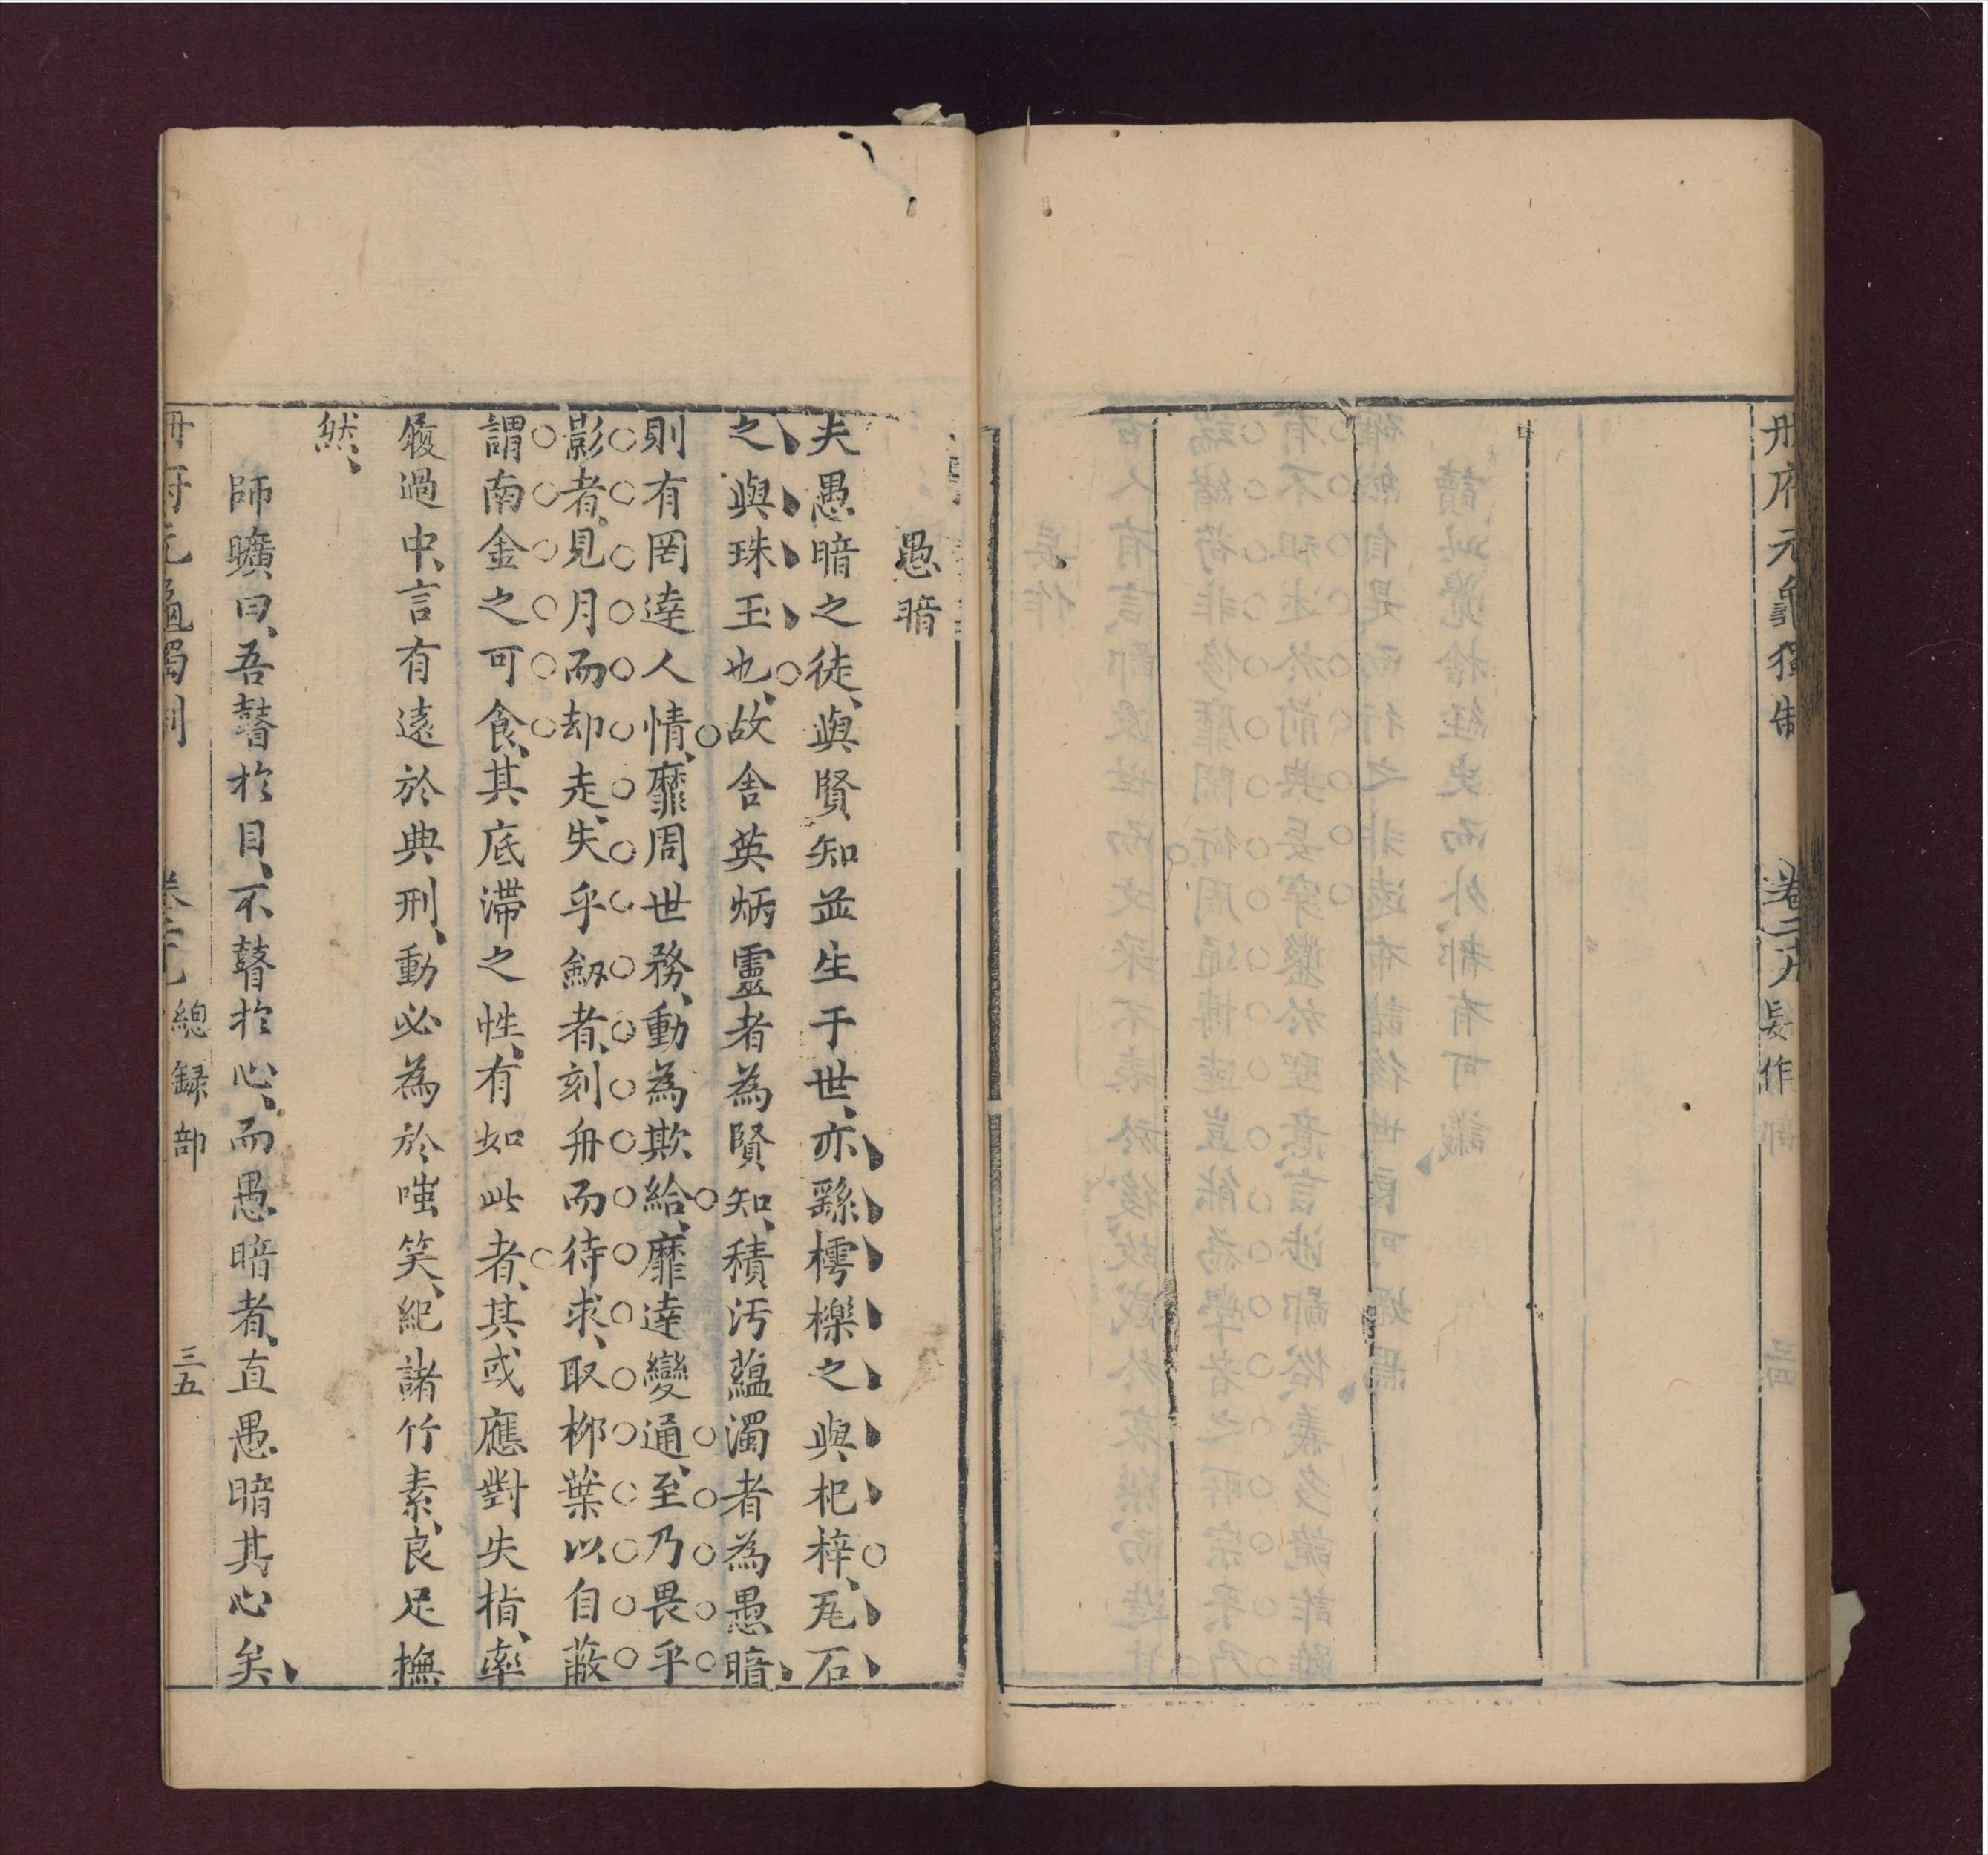 册府元龜獨制
卷二九
妄作
愚暗
夫愚暗之徒、與賢知並生于世、亦繇樗櫟之與杞梓、瓦石
之與珠玉也、故舎英炳靈者為賢知、積汚蘊濁者為愚暗
則有罔逹人情、靡周世務、動為欺給、靡逹變通、至乃畏乎
影者、見月而却走、失乎劔者、刻舟而待求、取桞葉以自蔽
謂南金之可食、其底滯之性、有如此者、其或應對失指、率
履過中、言有遠於典刑、動必為於嗤笑、紀諸竹素、良足撫
然、
師曠曰、吾瞽於目、不瞽於心、而愚暗者、直愚暗其心矣
册府元龜獨制
總録部
三五